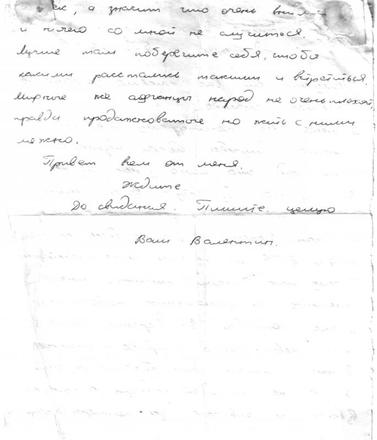 а значит что очень
и ничего со мной не случиться.
Лучше там поберегите себя, чтобы
какими расстались такими и встретиться.
Мирные же афганцы народ не очень плохой,
правда но жить с ними
можно.
Привет всем от меня.
Ждите
До свидания. Пишите, целую
Ваш Валентин.